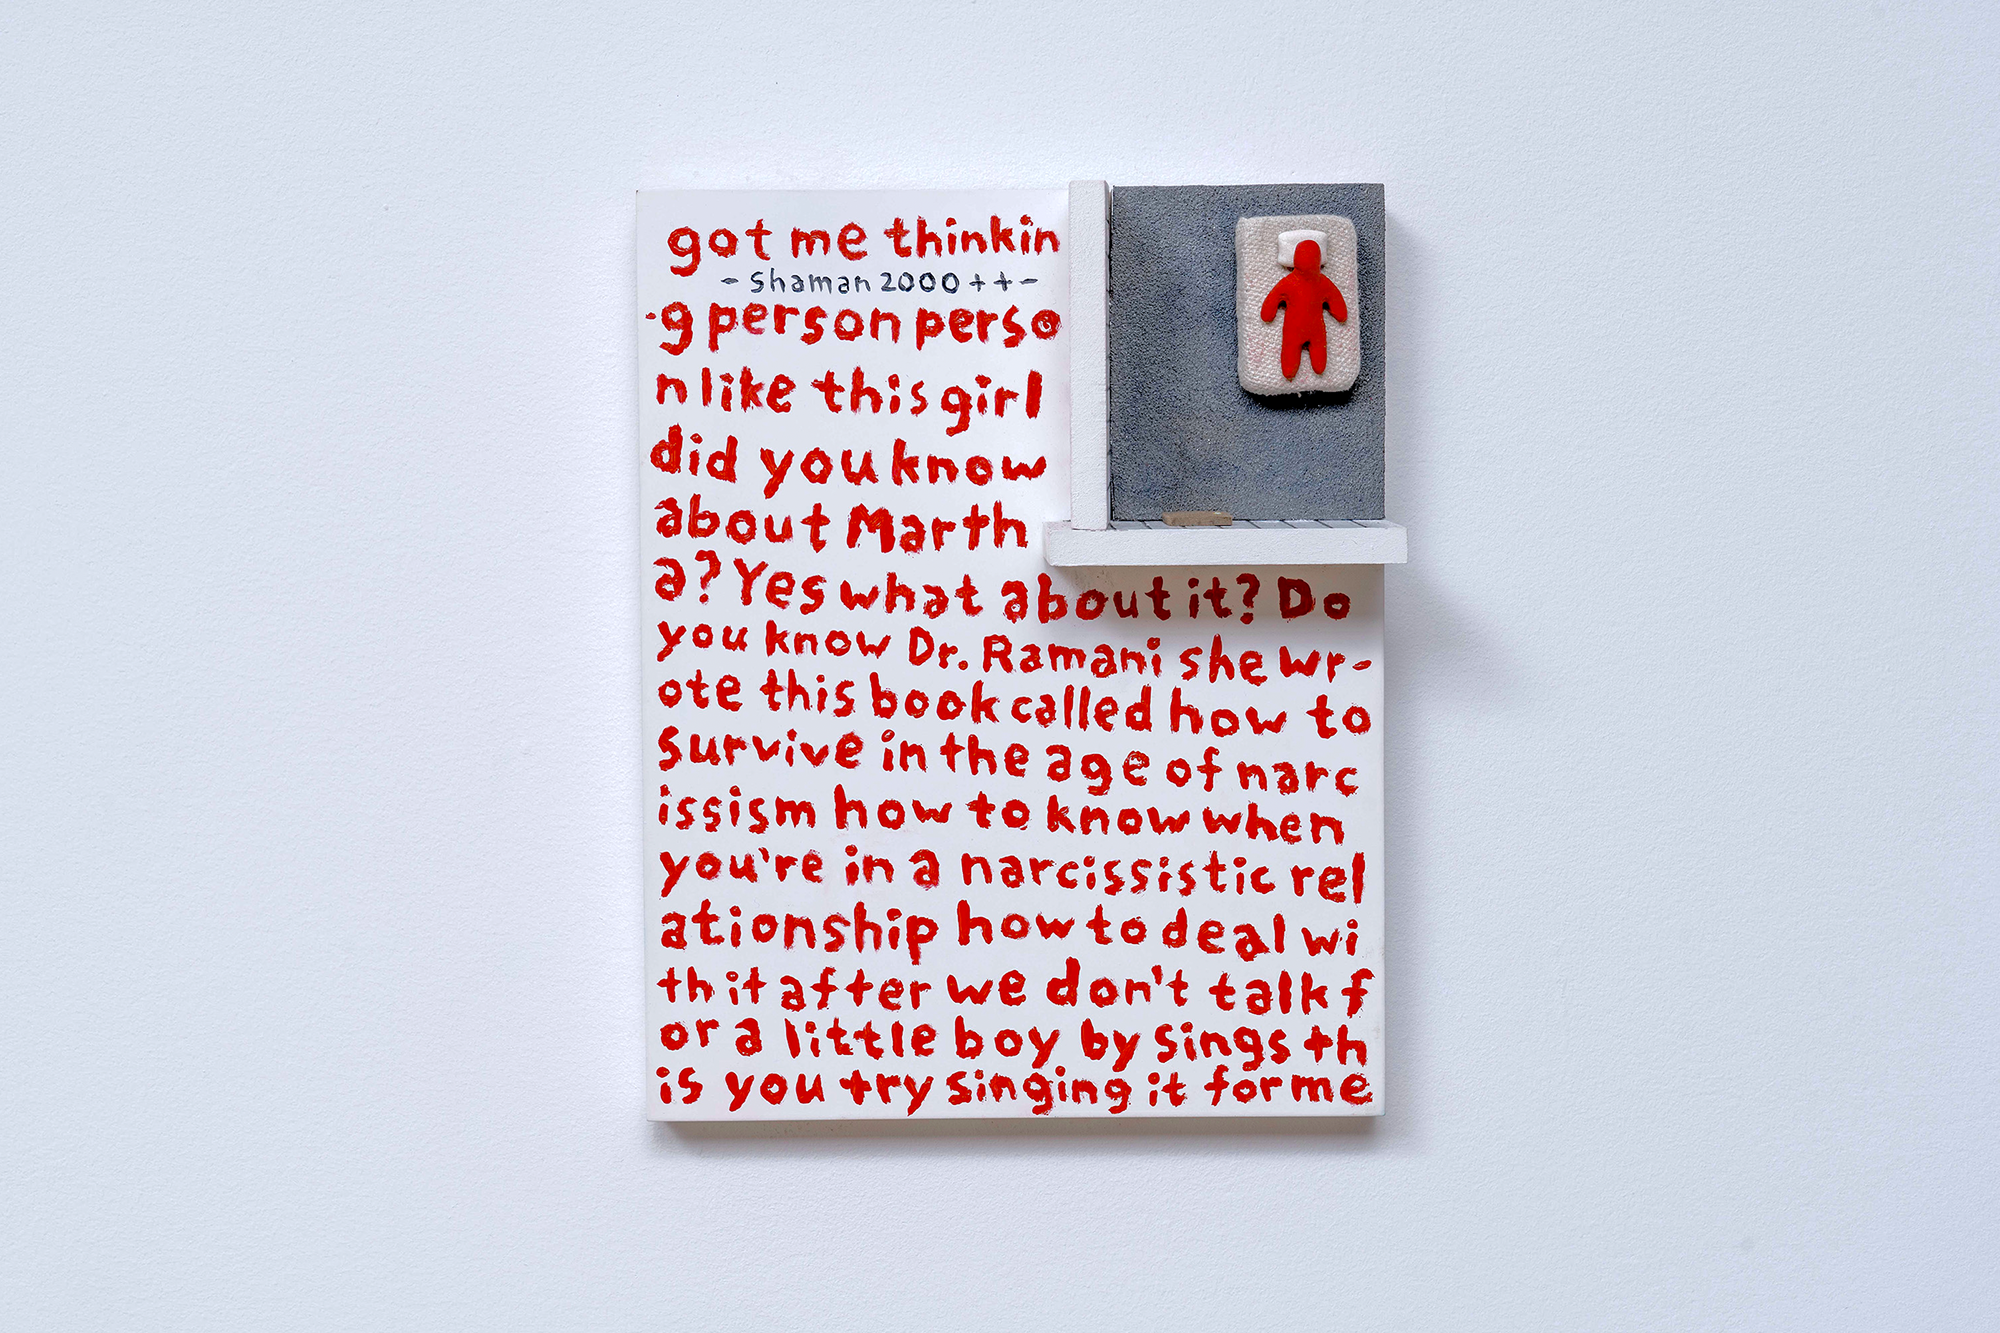 got me thinkin
- shaman 2000++-
-g person perso
n like this girl
did you know
about Marth
a? Yes what about it? Do
you know Dr. Ramani she wr-
ote this book called how to
survive in the age of narc
issism how to know when
you're in a narcissistic rel
ationship how to deal wi
th it after we don't talk f
or a little boy by sings th
is you try singing it for me